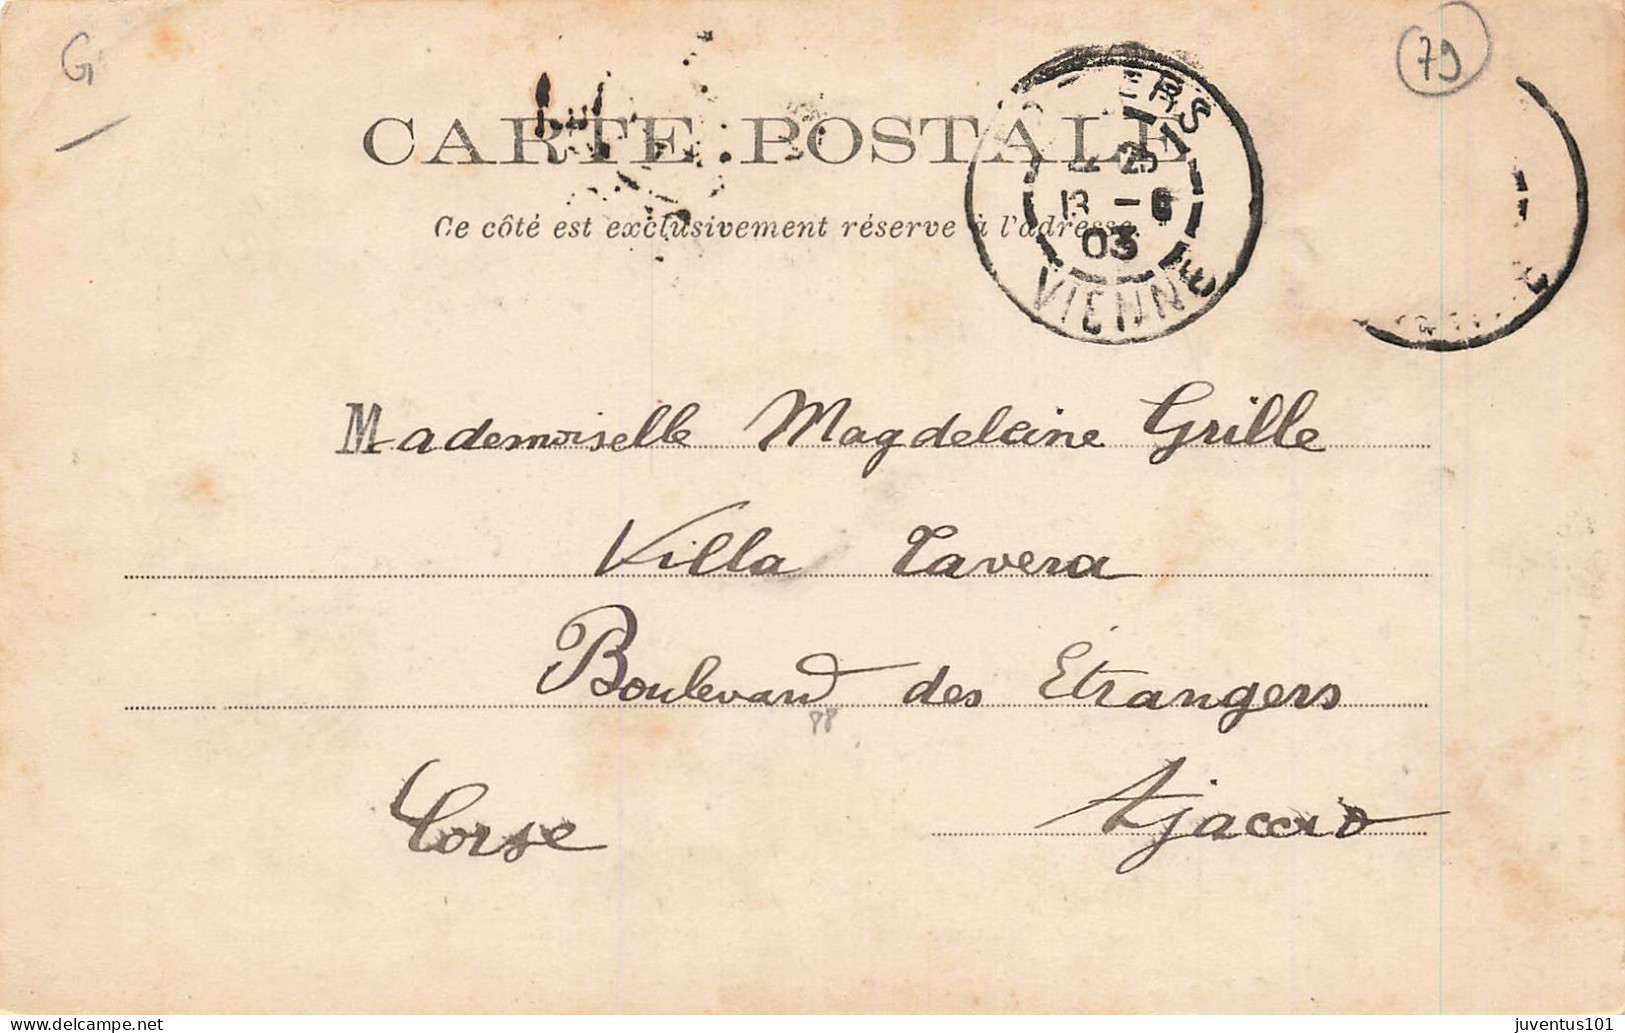 G
79
CARTE POSTALE
Ce côté est exclusivement réservé à l'adresse
ERS
25
13 - 6
03
VIENNE
Mademoiselle Magdeleine Grille
Villa Tavera
Boulevard des Etrangers
88
Corse Ajaccio
www.delcampe.net
juventus101